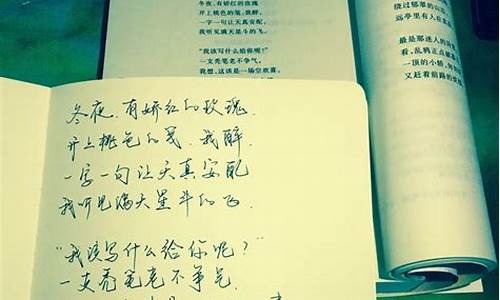 冬夜，有娇红的玫瑰
开上桃色的笺，我醉，
一字一句让天真安配，
我听见满天星斗的飞。
“我该写什么给你呢？”
一支秃笔老不争气。
我想，这该是一场空欢喜。
绕过郁翠的山
远亭里有人在
最是那迷人的
看，乱鸦正点破
一顶的小轿，
又赶着前路的
冬夜，有娇红的玫瑰．
开上桃色的笺．我醉．
一字一句让天真安配
我听见满天星斗的飞．
“我该写什么给你呢？”
一支秃笔老不争气．